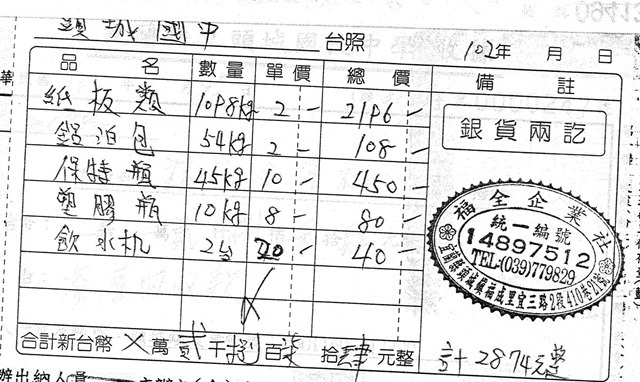 頭城國中 台照 102年 月 日
品名 數量 單價 總價 備註
紙板類 1098kg 2- 2196-
鋁泊包 54kg 2- 108-
保特瓶 45kg 10- 450-
塑膠瓶 10kg 8- 80-
飲水机 2台 20- 40-
銀貨兩訖
福全企業社
統一編號
14897512
TEL:(039)779829
宜蘭縣頭城鎮福成里宜三路2段410巷21號
合計新台幣 X萬貳千捌百柒拾肆元整
計2874元整